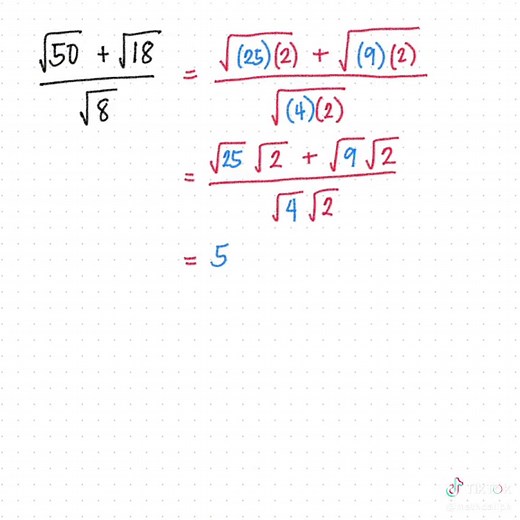 (√50 + √18)/√8 = (√(25)(2) + √(9)(2))/√(4)(2)
= (√25 √2 + √9 √2)/(√4 √2)
= 5
TikTok